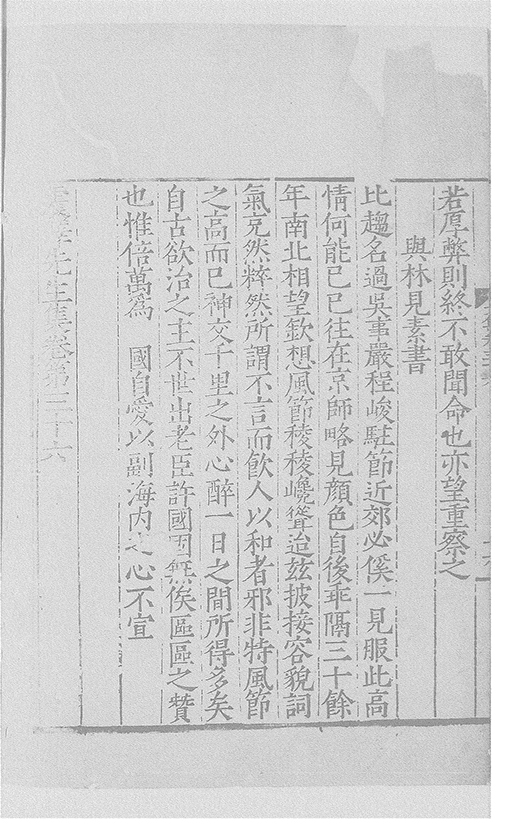 若厚弊則終不敢聞命也亦望重察之
與林見素書
比趨名過吳事嚴程峻駐節近郊必俟一見服此高
情何能已已往在京師略見顏色自後乖隔三十餘
年南北相望欽想風節稜稜巉聳迨玆披接容貌詞
氣充然粹然所謂不言而飲人以和者邪非特風節
之高而已神交千里之外心醉一日之間所得多矣
自古欲治之主不世出老臣許國固無俟區區之贊
也惟倍萬爲 國自愛以副海內之心不宣
先生集卷第三十六